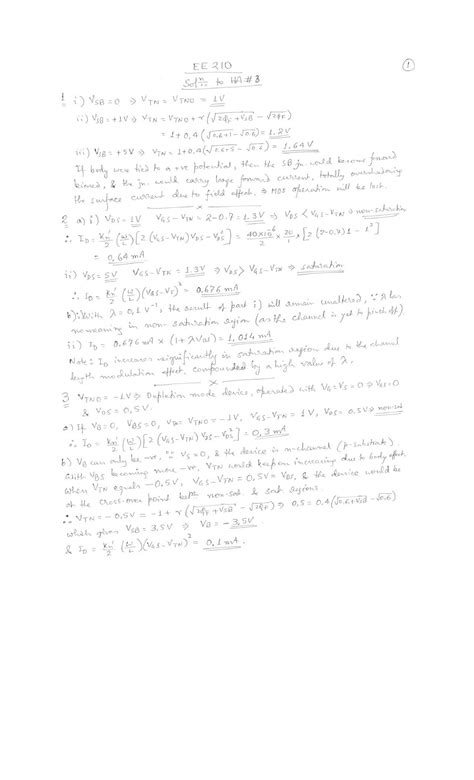 EE 210
①
Sol<sup>n</sup> to HA#3
1 i) V_SB = 0 ⇒ V_TN = V_TNO = 1V
ii) V_SB = +1V ⇒ V_TN = V_TNO + γ(√(2φ_F + V_SB) - √(2φ_F))
= 1 + 0.4(√(0.6+1) - √0.6) = 1.2V
iii) V_SB = +5V ⇒ V_TN = 1 + 0.4(√(0.6+5) - √0.6) = 1.64V
If body were tied to a +ve potential, then the SB jn. would become forward
biased, & the jn. would carry huge forward current, totally overwhelming
the surface current due to field effect. ⇒ MOS operation will be lost.
2 a) i) V_DS = 1V V_GS - V_TN = 2 - 0.7 = 1.3V ⇒ V_DS < V_GS - V_TN ⇒ non-saturation
∴ I_D = k_n'/2 (W/L)[2(V_GS - V_TN)V_DS - V_DS²] = 40×10⁻⁶/2 × 20/1 × [2(2-0.7)1 - 1²]
= 0.64 mA
ii) V_DS = 5V V_GS - V_TN = 1.3V ⇒ V_DS > V_GS - V_TN ⇒ saturation
∴ I_D = k_n'/2 (W/L)(V_GS - V_T)² = 0.676 mA
b) i) With λ = 0.1 V⁻¹, the result of part i) will remain unaltered, ∵ λ has
no meaning in non-saturation region (as the channel is yet to pinch off)
ii) I_D = 0.676 mA × (1 + λV_DS) = 1.014 mA
Note: I_D increases significantly in saturation region due to the channel
length modulation effect, compounded by a high value of λ.
3 V_TNO = -1V ⇒ Depletion mode device, operated with V_G = V_S = 0 ⇒ V_GS = 0
& V_DS = 0.5V.
a) If V_B = 0, V_BS = 0, V_TN = V_TNO = -1V, V_GS - V_TN = 1V, V_DS = 0.5V ⇒ non-sat
∴ I_D = k_n'/2 (W/L)[2(V_GS - V_TN)V_DS - V_DS²] = 0.3 mA
b) V_B can only be -ve, ∵ V_S = 0, & the device is n-channel (p-substrate)
With V_BS becoming more -ve, V_TN would keep on increasing due to body effect
When V_TN equals -0.5V, V_GS - V_TN = 0.5V = V_DS, & the device would be
at the cross-over point betn non-sat. & sat. regions
∴ V_TN = -0.5V = -1 + γ(√(2φ_F + V_SB) - √(2φ_F)) ⇒ 0.5 = 0.4(√(0.6 + V_SB) - √0.6)
which gives V_SB = 3.5V ⇒ V_B = -3.5V
& I_D = k_n'/2 (W/L)(V_GS - V_TN)² = 0.1 mA.